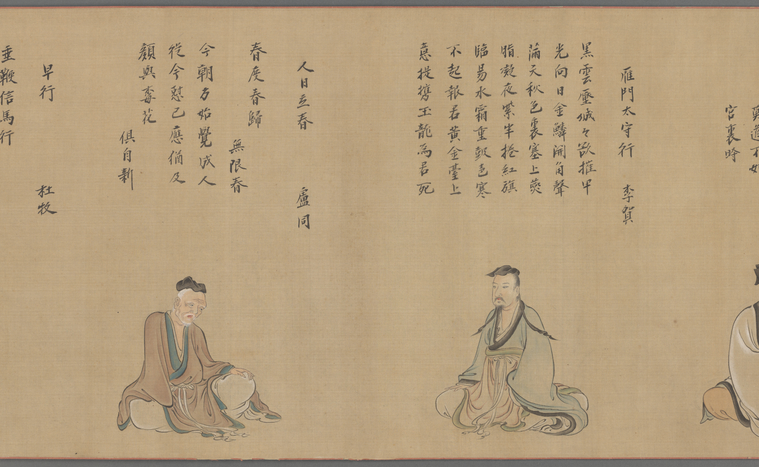 宮裏時
雁門太守行 李賀
黑雲壓城々欲摧甲
光向日金鱗開角聲
滿天秋色裏塞上燕
脂凝夜紫半捲紅旗
臨易水霜重皷色寒
不起報君黃金臺上
意提攜玉龍為君死
人日立春 盧同
春度春歸
無限春
今朝方始覺成人
從今 己應猶及
與 花
俱自新
早行 杜牧
垂鞭信馬行